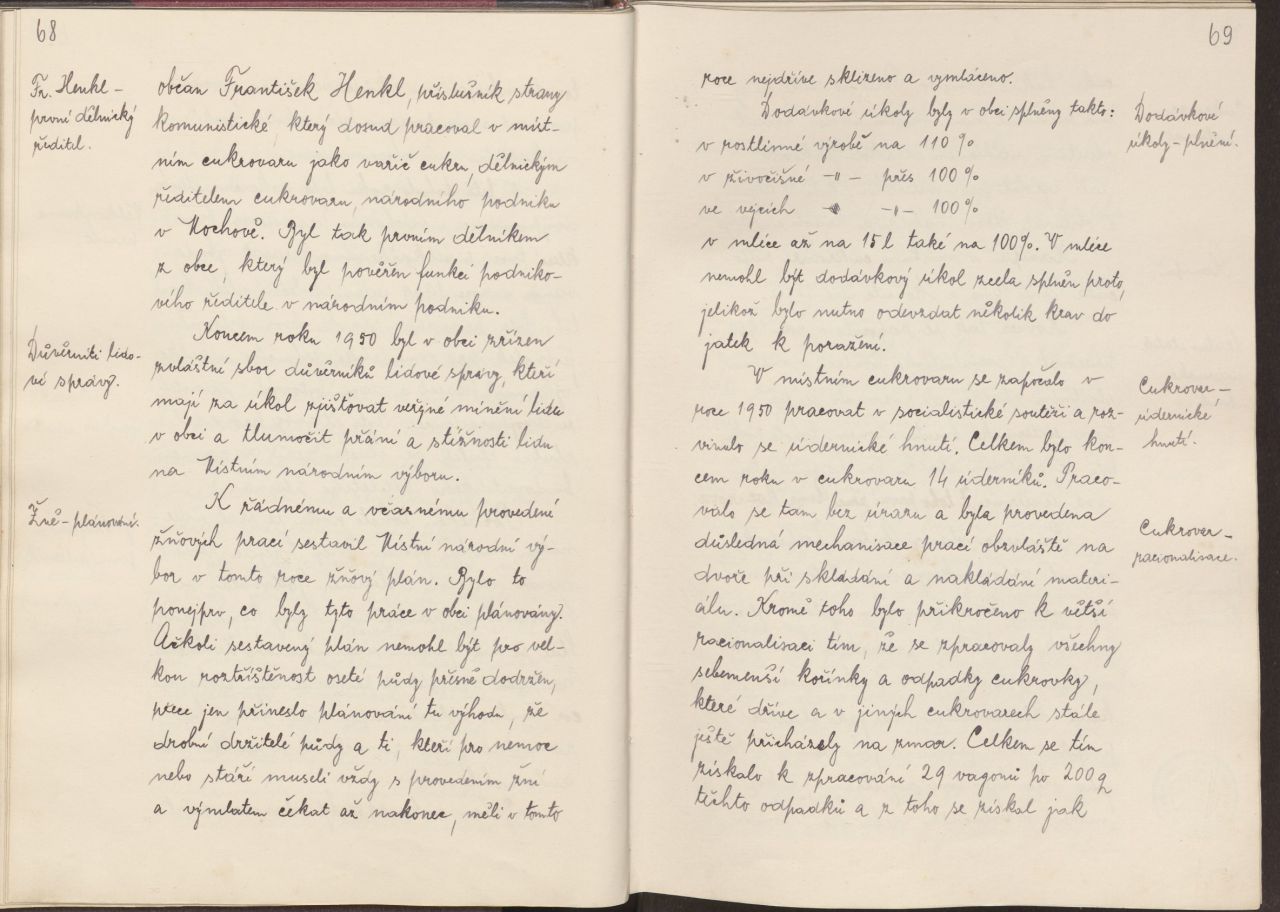 68
Fr. Henkl –
první dělnický
ředitel.
občan František Henkl, příslušník strany
komunistické, který dosud pracoval v míst-
ním cukrovaru jako vařič cukru, dělnickým
ředitelem cukrovaru, národního podniku
v Mochově. Byl tak prvním dělníkem
z obce, který byl pověřen funkcí podniko-
vého ředitele v národním podniku.
Důvěrníci lido-
vé správy.
Koncem roku 1950 byl v obci zřízen
zvláštní sbor důvěrníků lidové správy, kteří
mají za úkol zjišťovat veřejné mínění lidu
v obci a tlumočit přání a stížnosti lidu
na Místním národním výboru.
Žně – plánování.
K řádnému a včasnému provedení
žňových prací sestavil Místní národní vý-
bor v tomto roce žňový plán. Bylo to
ponejprv, co byly tyto práce v obci plánovány.
Ačkoli sestavený plán nemohl být pro vel-
kou roztříštěnost oseté půdy přesně dodržen,
přece jen přineslo plánování tu výhodu, že
drobní držitelé půdy a ti, kteří pro nemoc
nebo stáří museli vždy s provedením žní
a výmlatem čekat až nakonec, měli v tomto
69
roce nejdříve sklizeno a vymláceno.
Dodávkové úkoly byly v obci splněny takto:
Dodávkové
úkoly – plnění.
v rostlinné výrobě na 110%
v živočišné –"– přes 100%
ve vejcích –"– 100%
v mléce až na 15 l také na 100%. V mléce
nemohl být dodávkový úkol zcela splněn proto,
jelikož bylo nutno odevzdat několik krav do
jatek k poražení.
V místním cukrovaru se započalo v
Cukrovar –
údernické
hnutí.
roce 1950 pracovat v socialistické soutěži a roz-
vinulo se údernické hnutí. Celkem bylo kon-
cem roku v cukrovaru 14 úderníků. Praco-
valo se tam bez úrazu a byla provedena
Cukrovar –
racionalisace.
důsledná mechanisace prací obzvláště na
dvoře při skládání a nakládání materi-
álu. Kromě toho bylo přikročeno k větší
racionalisaci tím, že se zpracovaly všechny
sebemenší kořínky a odpadky cukrovky,
které dříve a v jiných cukrovarech stále
ještě přicházely na zmar. Celkem se tím
získalo k zpracování 29 vagonů po 200 q
těchto odpadků a z toho se získal jak